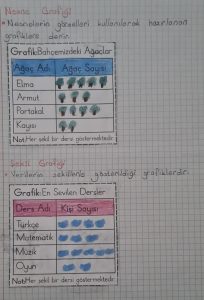 Nesne Grafiği
• Nesnelerin görselleri kullanılarak hazırlanan
grafiklere denir.
Grafik:Bahçemizdeki Ağaçlar
Ağaç Adı Ağaç Sayısı
Elma
Armut
Portakal
Kayısı
Not:Her şekil bir dersi göstermektedir.
Şekil Grafiği
• Verilerin şekillerle gösterildiği grafiklerdir.
Grafik:En Sevilen Dersler
Ders Adı Kişi Sayısı
Türkçe
Matematik
Müzik
Oyun
Not:Her şekil bir dersi göstermektedir.